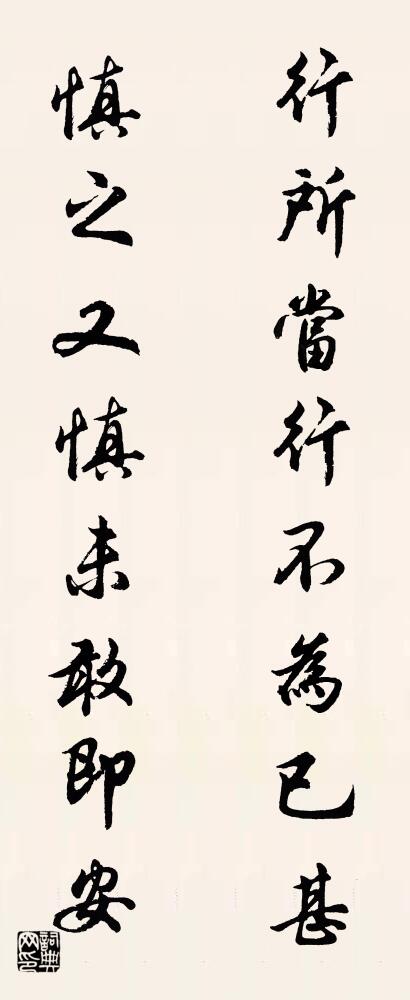 行所當行不為已甚
慎之又慎未敢即安
詞典網印